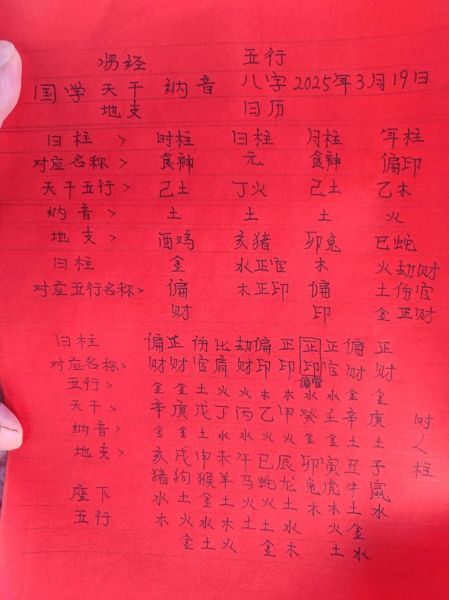 易经 五行
国学 天干 纳音 八字 2025年3月19日
地支 日历
日柱 > 时柱 日柱 月柱 年柱
对应名称> 食神 元 食神 偏印
天干五行> 己土 丁火 己土 乙木
纳音> 土 土 土 火
地支> 酉鸡 亥猪 卯兔 巳蛇
日柱 金 水正官 木 火劫财
对应五行名称> 偏 木正印 偏 土伤官
财 印 金正财
日柱 偏 正 伤 比 劫 偏 正 正 正 偏 正
对应名称> 财 财 官 肩 财 印 印 印 官 财 财
偏官
五行> 金 金 土 火 火 木 木 水 水 金 金
天干> 辛 庚 戊 丁 丙 乙 甲 癸 壬 辛 庚 时
纳音> 金 金 土 水 水 火 火 金 金 土 土 <
地支> 亥 戌 申 未 午 巳 辰 卯 寅 丑 子 柱
猪 狗 猴 羊 马 蛇 龙 兔 虎 牛 鼠
座下 水 土 金 土 火 火 土 木 木 土 水
五行 木 火 水 火 土 土 水 火 金
金 土 火 金 木 土 水